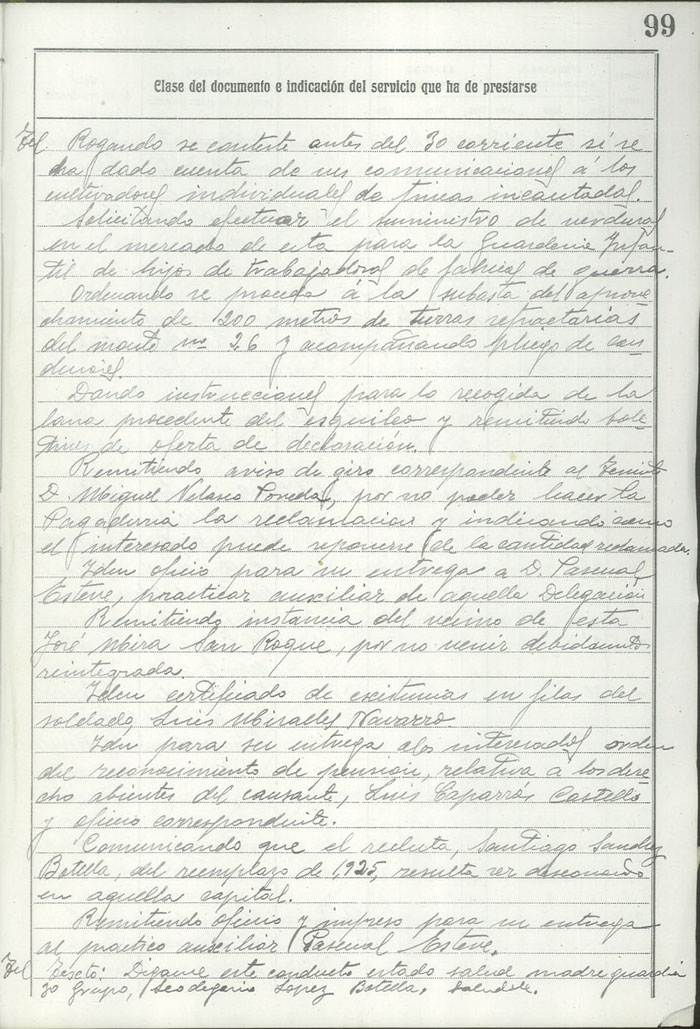 99
Clase del documento e indicación del servicio que ha de prestarse
Tel. Rogando se conteste antes del 30 corriente si se
ha dado cuenta de sus comunicaciones á los
cultivadores individuales de fincas incautadas.
Solicitando efectuar el suministro de verduras
en el mercado de esta para la Guarderia Infan-
til de hijos de trabajadores de fabricas de guerra.
Ordenando se proceda á la subasta del aprove
chamiento de 200 metros de tierras refractarias
del monte nº 26 y acompañando pliego de con
diciones.
Dando instrucciones para la recogida de la
lana procedente del esquileo y remitiendo bole
tines de oferta de declaración.
Remitiendo aviso de giro correspondiente al Teniente
D. Miguel Velasco Poveda, por no poder hacer la
Pagaduria la reclamacion y indicando como
el interesado puede reponerse de la cantidad reclamada.
Iden oficio para su entrega a D. Pascual
Esteve, practicar auxiliar de aquella Delegación
Remitiendo instancia del vecino de esta
José Mira San Roque, por no venir debidamente
reintegrada.
Iden certificado de existencias en filas del
soldado, Luis Miralles Navarro.
Iden para su entrega a los interesados orden
del reconocimiento de pension, relativa a los dere
cho abientes del causante, Luis Caparrós Castelló
y oficio correspondiente.
Comunicando que el recluta, Santiago Sanchez
Botella, del reemplazo de 1,925, resulta ser desconocido
en aquella capital.
Remitiendo oficio y impreso para su entrega
al practico auxiliar Pascual Esteve.
Tel Texto: Digame este conducto estado salud madre guardia
30 Grupo, Leodegario Lopez Botella. Saludole.